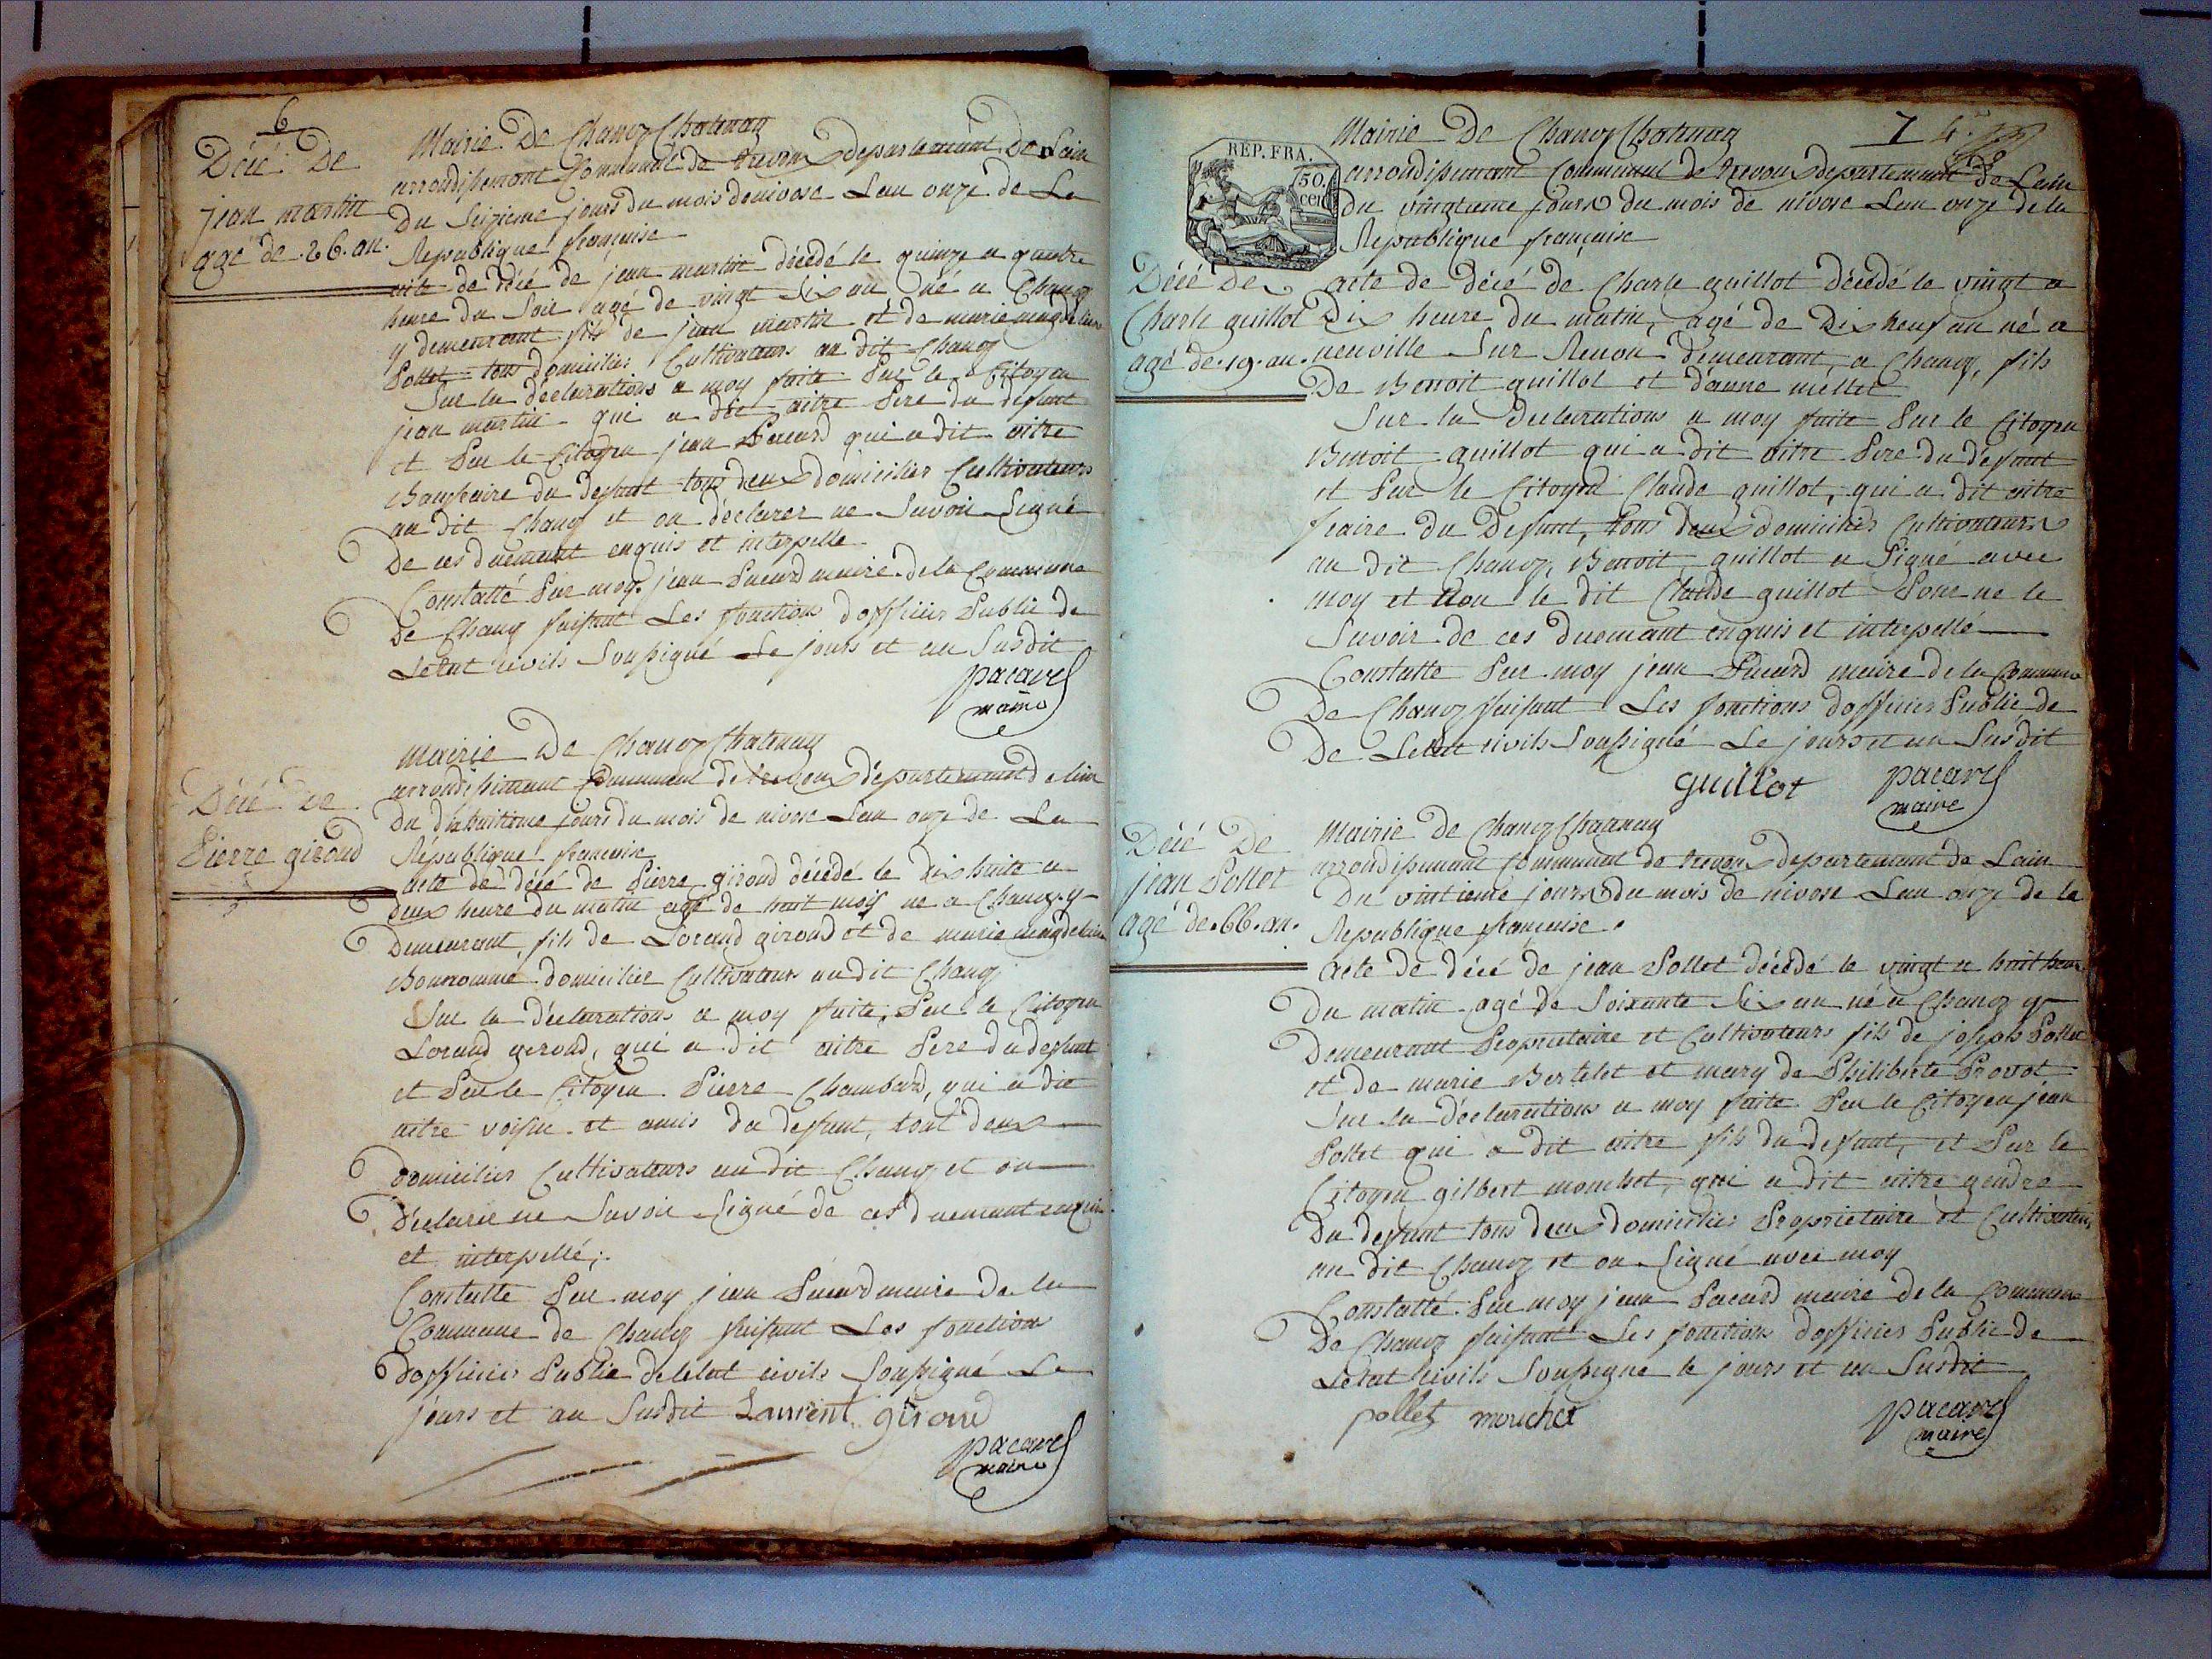 6
Décé De
jean martin
agé de .26. an.
Mairie De Chanoz Chatenay
arrondissement Communal de trevoux departement De Lain
Du Seizieme jours du mois de nivose Lan onze de La
Republique française
acte de décé de jean martin décédé le quinze a quatre
heure du Soir agé de vingt Six an né a Chanoz
y demeurant fils de jean martin et de marie magdelaine
Pollet tous domicilier Cultivateurs au dit Chanoz
Sur la déclarations a moy faite Par le Citoyen
jean martin qui a dit aitre Pere du defunt
et Par le Citoyen jean Pacard qui a dit aitre
du defunt tous deux domicilier Cultivateurs
au dit Chanoz et on déclarer ne Savoir Signé
De ces duemant enquis et interpelle
Constatté Par moy jean Pacard maire de la Commune
De Chanoz faisant Les fonctions dofficier Public de
Letat civils Soussigné Le jours et an Susdit
pacard
maire
Décé De
Pierre giroud
Mairie De Chanoz Chatenay
arrondissemant Communal de trevoux département de lain
Du dixhuitieme jours du mois de nivose Lan onze de La
République francoise
acte de décé de Pierre giroud décédé le dix huite a
deux heure du matin agé de huit mois né a Chanoz y
Demeurant, fils de Lorand giroud et de marie magdelaine
Bonnomme domicilier Cultivateurs au dit Chanoz
Sur la déclarations a moy faite, Par le Citoyen
Lorand giroud, qui a dit aitre Pere du defunt
et Par le Citoyen Pierre Chambard, qui a dit
aitre voisin et amis du defunt, tout deux
domicilier Cultivateurs au dit Chanoz et on
déclaré ne Savoir Signé de ces duemant enquis
et interpellé;
Constatte Par moy jean Pacard maire De la
Commune de Chanoz faisant Les fonction
dofficier Public de letat civils Soussigné Le
jours et an Susdit Laurent giroud
pacard
maire
7 4.
REP. FRA.
50.
cent
Mairie De Chanoz Chatenay
arrondissemant Communal de trevoux departement de Lain
Du vingtieme jours du mois de nivose Lan onze de la
Republique française
Décé De
Charle guillot
agé de .19. an.
acte de décé de Charle guillot décédé le vingt a
Dix heure du matin, agé de Dix neuf an né a
neuville Sur Renon demeurant, a Chanoz, fils
De Benoit guillot et d'anne mellet
Sur la Declarations a moy faite Par le Citoyen
Benoit guillot qui a dit aitre Pere du défunt
et Par le Citoyen Claude guillot, qui a dit aitre
fraire du Defunt, tous deux domicilier Cultivateurs
au dit Chanoz, Benoit guillot a Signé avec
moy et non le dit Claude guillot Pour ne le
Savoir de ces duemant enquis et interpellé
Constatte Par moy jean Pacard maire de la Commune
De Chanoz faisant Les fonctions dofficier Public de
De Letat civils Soussigné Le jours et an Susdit
guillot pacard
maire
Décé De
jean Pollet
agé de .66. an.
Mairie de Chanoz Chatenay
arrondissemant Communal de trevoux departemant de Lain
Du vintieme jours du mois de nivose Lan onze de la
Republique française.
acte de décé de jean Pollet décédé le vingt a huit heure
Du matin agé de Soixante Six an né a Chanoz y
Demeurant Propriétaire et Cultivateurs fils de joseph Pollet
et de marie Bertelet et mary de Philiberte Provot
Sur la déclarations a moy faite Par le Citoyen jean
Pollet qui a dit aitre fils du defunt, et Par le
Citoyen gilbert mouchet, qui a dit aitre gendre
Du defunt tous deux domicilier Propriétaire et Cultivateurs
au dit Chanoz et on Signé avec moy
Constatté Par moy jean Pacard maire de la Commune
De Chanoz faisant Les fonctions dofficier Public de
Letat civils Soussigne le jours et an Susdit
pollet mouchet pacard
maire